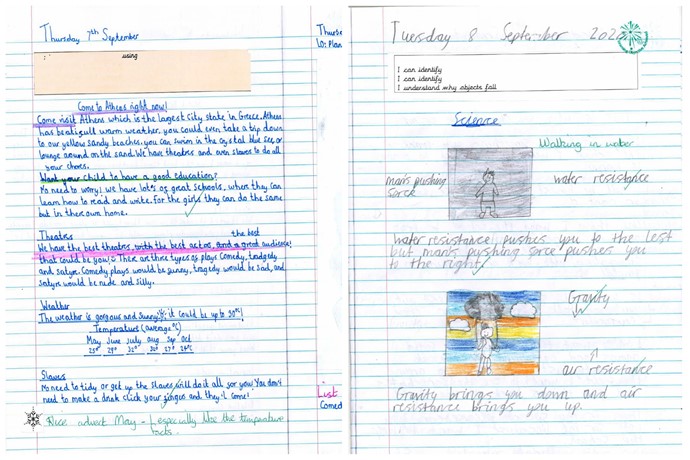 Thursday 7th September
using
Come to Athens right now!
Come visit Athens which is the largest City state in Greece. Athens
has beatifull warm weather. you could even take a trip down
to our yellow sandy beaches. you can swim in the crystal blue sea or
lounge around on the sand. We have theatres and even slaves to do all
your chores.
Want your child to have a good education?
No need to worry! we have lots of great schools, where they can
learn how to read and write. For the girls they can do the same
but in there own home.
Theatres
the best
We have the best theatres, with the best actors, and a great audience!
that could be you! There are three types of plays Comedy, tradgedy
and satyr. Comedy plays would be funny, tradgedy would be sad, and
satyrs would be rude and silly.
Weather
The weather is gorgous and sunny, it could be up to 30°C!
Temperature (average °C)
May June July aug Sep Oct
No need to tidy or get up the slaves will do it all for you. You don't
need to make a drink click your fingers and they'll come!
Slaves
Nice advert May - I especially like the temperature
facts.
Thurs
LO: Plan
List
Comed
Tuesday 8 September 202
I can identify
I can identify
I understand why objects fall
Science
Walking in water
mans pushing
force
water resistance
water resistance, pushes you to the left
but mans pushing force pushes you
to the right.
Gravity
↑
air resistance
Gravity brings you down and air
resistance brings you up.